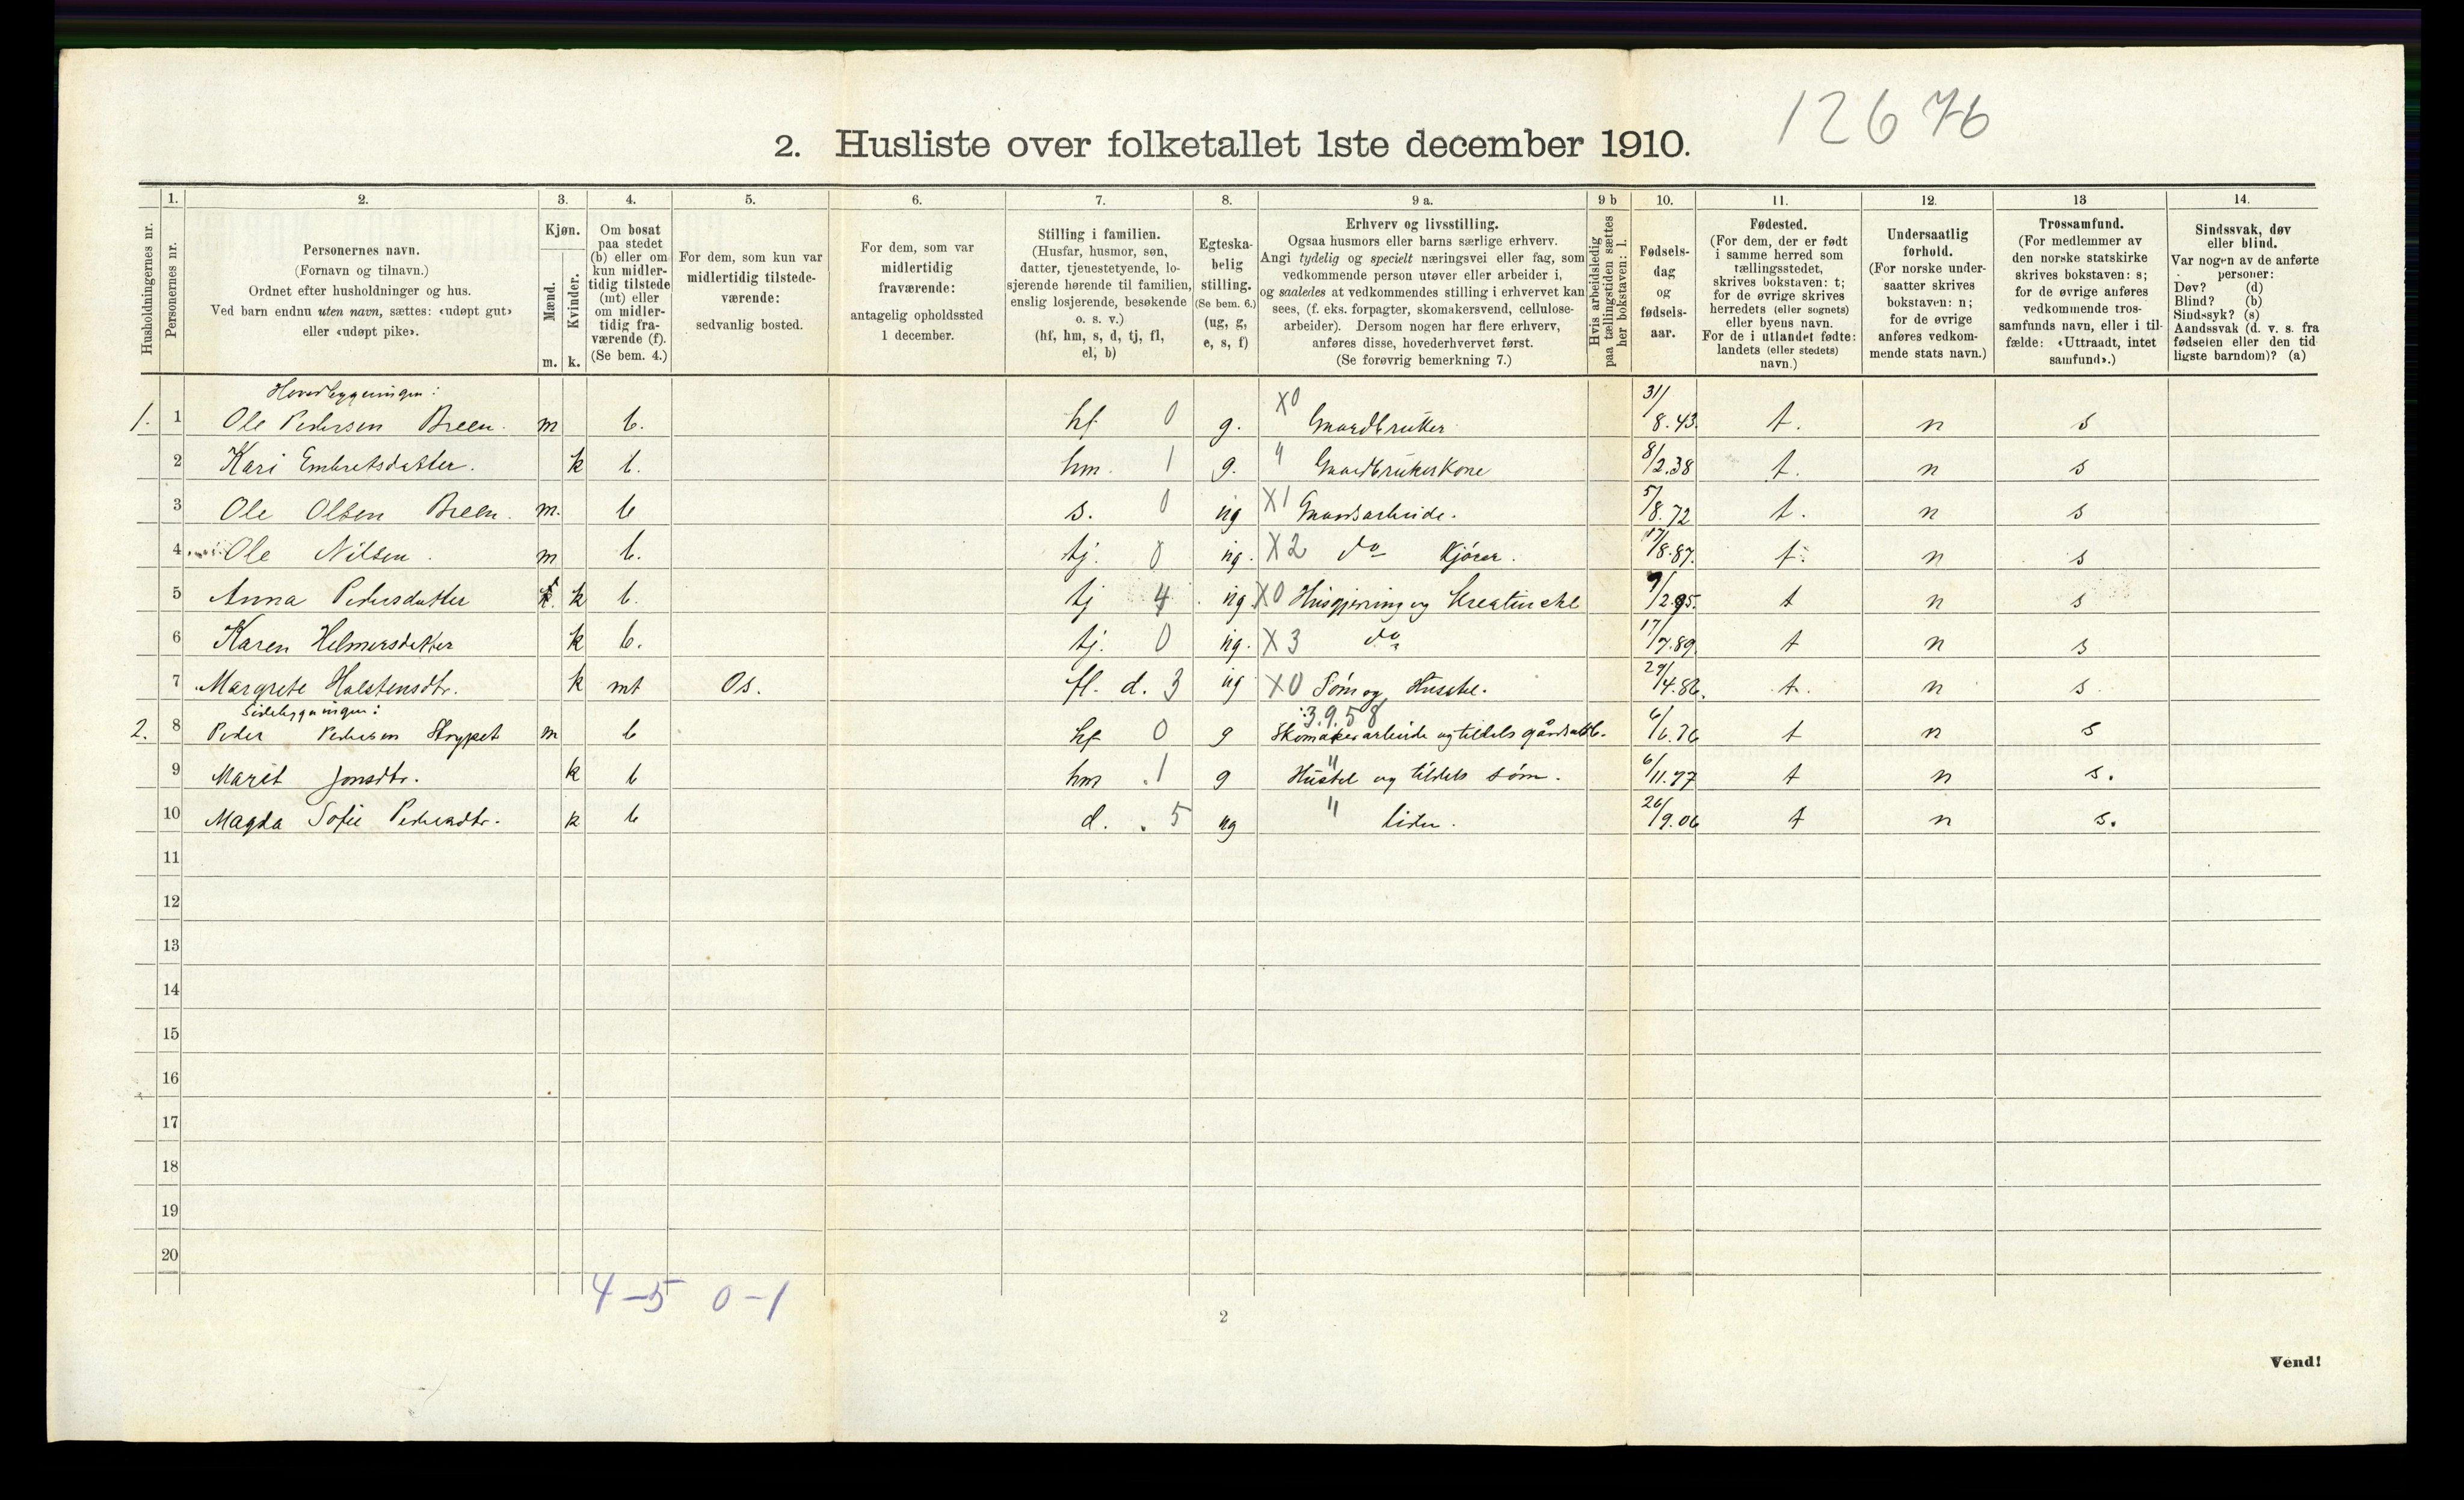 12676
2. Husliste over folketallet 1ste december 1910.
1. 2. 3. 4. 5. 6. 7. 8. 9 a. 9 b 10. 11. 12. 13 14.
Husholdningernes nr.
Personernes nr.
Personernes navn.
(Fornavn og tilnavn.)
Ordnet efter husholdninger og hus.
Ved barn endnu uten navn, sættes: «udøpt gut»
eller «udøpt pike».
Kjøn.
Mænd.
Kvinder.
m. k.
Om bosat
paa stedet
(b) eller om
kun midler-
tidig tilstede
(mt) eller
om midler-
tidig fra-
værende (f).
(Se bem. 4.)
For dem, som kun var
midlertidig tilstede-
værende:
sedvanlig bosted.
For dem, som var
midlertidig
fraværende:
antagelig opholdssted
1 december.
Stilling i familien.
(Husfar, husmor, søn,
datter, tjenestetyende, lo-
sjerende hørende til familien,
enslig losjerende, besøkende
o. s. v.)
(hf, hm, s, d, tj, fl,
el, b)
Egteska-
belig
stilling.
(Se bem. 6.)
(ug, g,
e, s, f)
Erhverv og livsstilling.
Ogsaa husmors eller barns særlige erhverv.
Angi tydelig og specielt næringsvei eller fag, som
vedkommende person utøver eller arbeider i,
og saaledes at vedkommendes stilling i erhvervet kan
sees, (f. eks. forpagter, skomakersvend, cellulose-
arbeider). Dersom nogen har flere erhverv,
anføres disse, hovederhvervet først.
(Se forøvrig bemerkning 7.)
Hvis arbeidsledig
paa tællingstiden sættes
her bokstaven: l.
Fødsels-
dag
og
fødsels-
aar.
Fødested.
(For dem, der er født
i samme herred som
tællingsstedet,
skrives bokstaven: t;
for de øvrige skrives
herredets (eller sognets)
eller byens navn.
For de i utlandet fødte:
landets (eller stedets)
navn.)
Undersaatlig
forhold.
(For norske under-
saatter skrives
bokstaven: n;
for de øvrige
anføres vedkom-
mende stats navn.)
Trossamfund.
(For medlemmer av
den norske statskirke
skrives bokstaven: s;
for de øvrige anføres
vedkommende tros-
samfunds navn, eller i til-
fælde: «Uttraadt, intet
samfund».)
Sindssvak, døv
eller blind.
Var nogen av de anførte
personer:
Døv? (d)
Blind? (b)
Sindssyk? (s)
Aandssvak (d. v. s. fra
fødselen eller den tid
ligste barndom)? (a)
Hovedbygningen:
1. 1 Ole Pedersen Breen. m b. hf 0 g. X0 Gaardbruker 31/8.43. t. n s
2 Kari Embretsdatter. k b. hm. 1 g. " Gaardbrukerkone 8/2.38 t. n s
3 Ole Olsen Breen. m. b s. 0 ug X1 Gaardsarbeide. 5/8.72 t. n s
4 Ole Nilsen. m b. tj. 0 ug. X2 do Kjører. 17/8.87. t. n s
5 Anna Pedersdatter k b. tj 4 ug X0 Husgjerning og Kreaturstel 9/2.95. t n s
6 Karen Helmersdatter k b. tj. 0 ug. X3 do 17/7.89. t n s
7 Margrete Halstensdtr. k mt Os. fl. d. 3 ug X0 Søm og Husstel. 29/4.86. t. n s.
Sidebygningen:
3.9.58
2. 8 Peder Pedersen Strypet m b hf 0 g Skomakerarbeide og tildels gårdsarb. 6/6.76 t n s
9 Marit Jonsdtr. k b hm 1 g " Husstel og tildels søm. 6/11.77 t n s.
10 Magda Sofie Pedersdtr. k b d. 5 ug " liden. 26/9.06 t n s.
11
12
13
14
15
16
17
18
19
20
4-5 0-1
2
Vend!